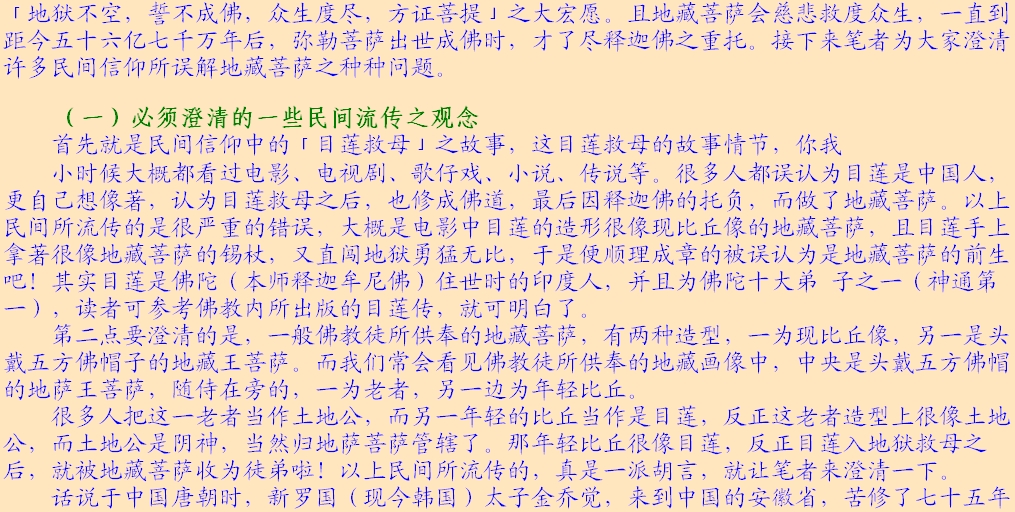 「地狱不空，誓不成佛，众生度尽，方证菩提」之大宏愿。且地藏菩萨会慈悲救度众生，一直到
距今五十六亿七千万年后，弥勒菩萨出世成佛时，才了尽释迦佛之重托。接下来笔者为大家澄清
许多民间信仰所误解地藏菩萨之种种问题。
（一）必须澄清的一些民间流传之观念
首先就是民间信仰中的「目莲救母」之故事，这目莲救母的故事情节，你我
小时候大概都看过电影、电视剧、歌仔戏、小说、传说等。很多人都误认为目莲是中国人，
更自己想像著，认为目莲救母之后，也修成佛道，最后因释迦佛的托负，而做了地藏菩萨。以上
民间所流传的是很严重的错误，大概是电影中目莲的造形很像现比丘像的地藏菩萨，且目莲手上
拿著很像地藏菩萨的锡杖，又直闯地狱勇猛无比，于是便顺理成章的被误认为是地藏菩萨的前生
吧！其实目莲是佛陀（本师释迦牟尼佛）住世时的印度人，并且为佛陀十大弟 子之一（神通第
一），读者可参考佛教内所出版的目莲传，就可明白了。
第二点要澄清的是，一般佛教徒所供奉的地藏菩萨，有两种造型，一为现比丘像，另一是头
戴五方佛帽子的地藏王菩萨。而我们常会看见佛教徒所供奉的地藏画像中，中央是头戴五方佛帽
的地萨王菩萨，随侍在旁的，一为老者，另一边为年轻比丘。
很多人把这一老者当作土地公，而另一年轻的比丘当作是目莲，反正这老者造型上很像土地
公，而土地公是阴神，当然归地萨菩萨管辖了。那年轻比丘很像目莲，反正目莲入地狱救母之
后，就被地藏菩萨收为徒弟啦！以上民间所流传的，真是一派胡言，就让笔者来澄清一下。
话说于中国唐朝时，新罗国（现今韩国）太子金乔觉，来到中国的安徽省，苦修了七十五年